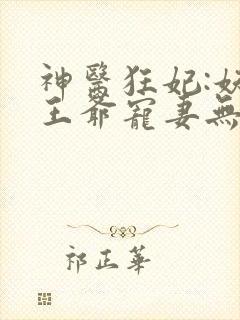 神醫狂妃:妖
王爺寵妻無
祁正華